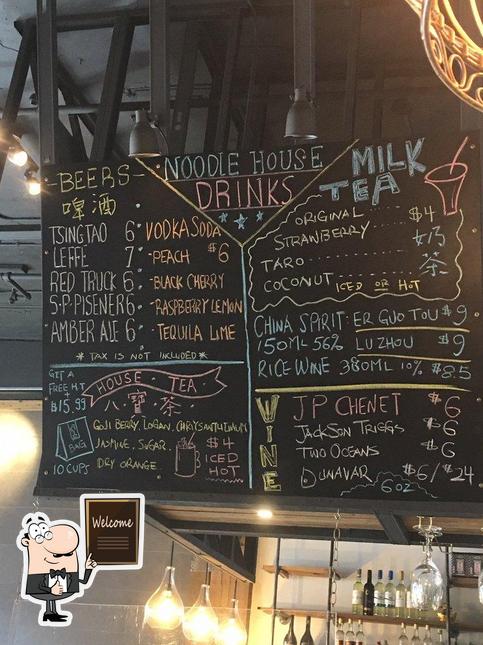 NOODLE HOUSE
DRINKS
-BEERS-
啤酒
TSINGTAO 6.
LEFFE 7.
RED TRUCK 6.
S.P. PISENER 6.
AMBER ALE 6.
* TAX IS NOT INCLUDED *
VODKA SODA
-PEACH $6
-BLACK CHERRY
-RASPBERRY LEMON
-TEQUILA LIME
MILK
TEA
ORIGINAL $4
STRAWBERRY 奶
TARO 茶
COCONUT ICED OR HOT
CHINA SPIRIT: ER GUO TOU $9
150ML 56% LUZHOU $9
RICE WINE 380ML 10% $8.5
GET A
FREE
+
$15.99
10 CUPS
HOUSE TEA
八寶茶
GOJI BERRY, LOGAN, CHRYSANTHIMUM
JASMINE, SUGAR,
DRY ORANGE
$4
ICED
HOT
VINE
JP CHENET $6
JACKSON TRIGGS $6
TWO OCEANS $6
DUNAVAR $6/$24
6oz
Welcome